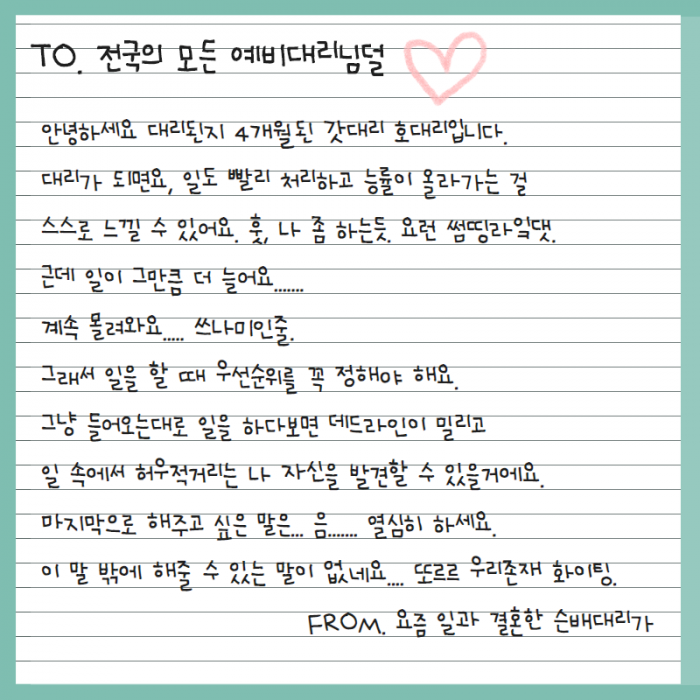 TO. 전국의 모든 예비대리님덜
안녕하세요 대리된지 4개월된 갓대리 호대리입니다.
대리가 되면요, 일도 빨리 처리하고 능률이 올라가는 걸
스스로 느낄 수 있어요. 훗, 나 좀 하는듯. 요런 썸띵라잌댓.
근데 일이 그만큼 더 늘어요.......
계속 몰려와요..... 쓰나미인줄.
그래서 일을 할 때 우선순위를 꼭 정해야 해요.
그냥 들어오는대로 일을 하다보면 데드라인이 밀리고
일 속에서 허우적거리는 나 자신을 발견할 수 있을거에요.
마지막으로 해주고 싶은 말은... 음....... 열심히 하세요.
이 말 밖에 해줄 수 있는 말이 없네요.... 또르르 우리존재 화이팅.
FROM. 요즘 일과 결혼한 순배대리가